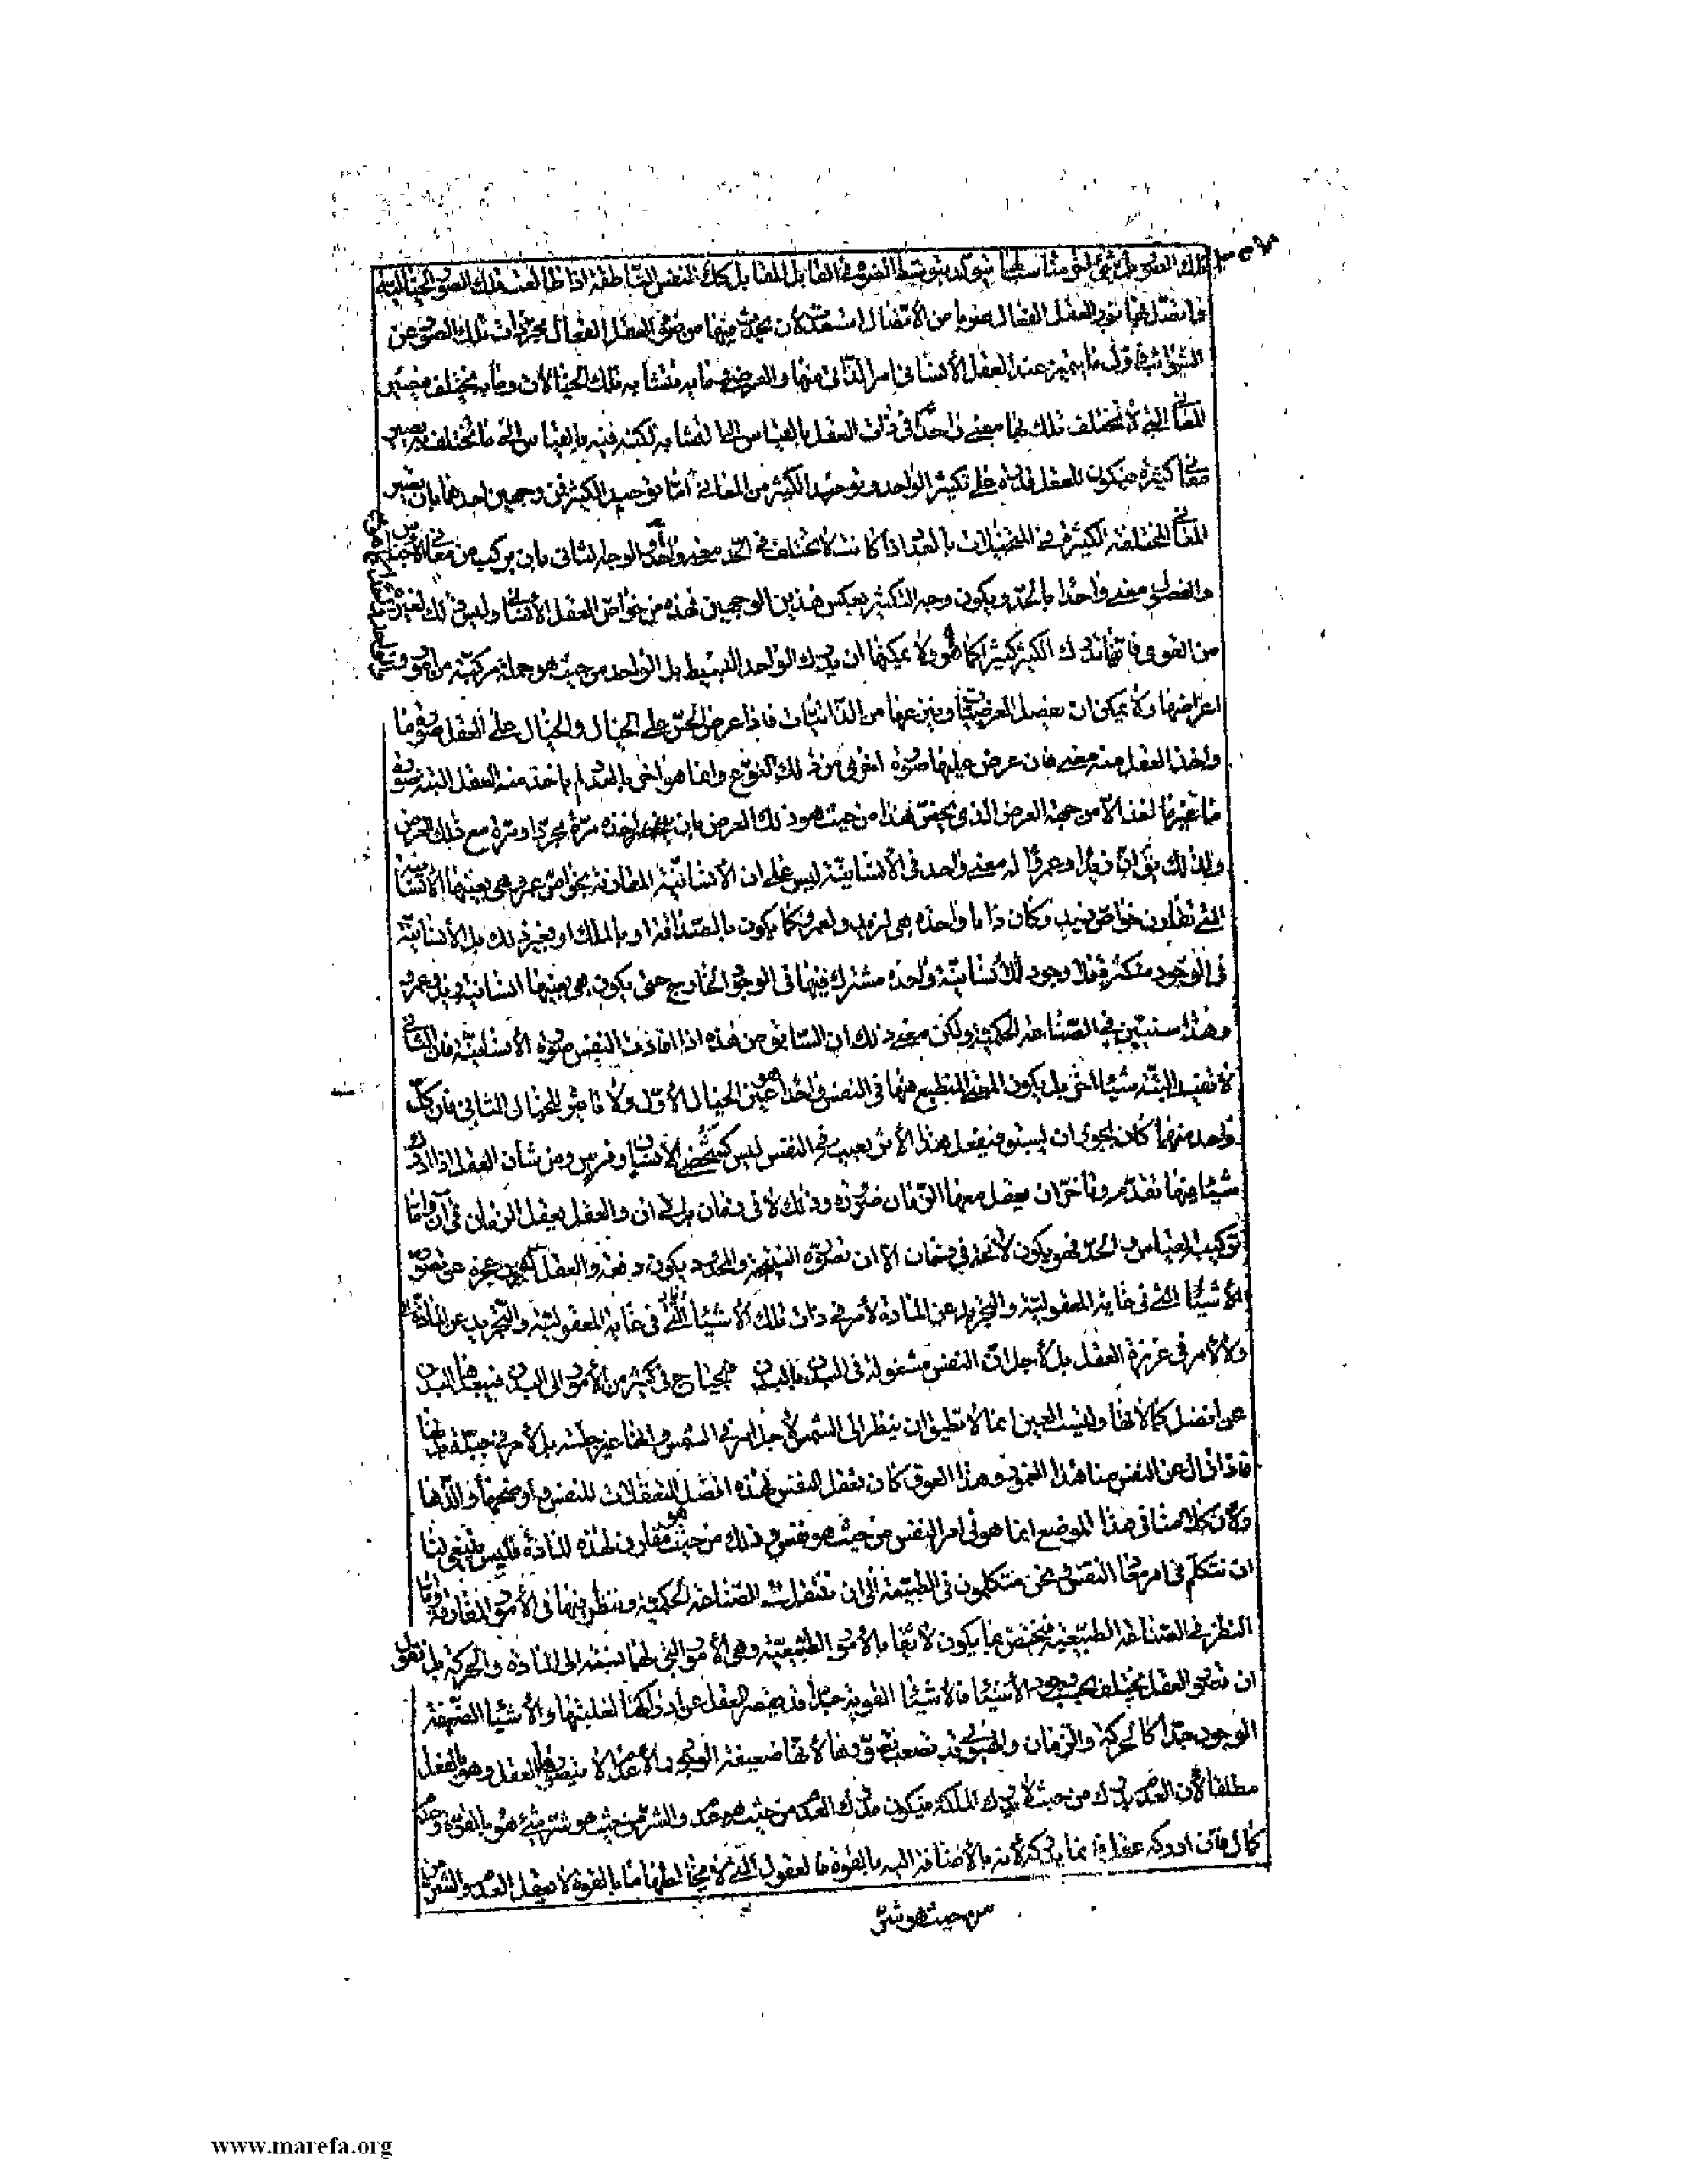 تلك الصور بل شئ اخر مناسب لها يتولد بتوسط الضوء فى القابل المقابل كك النفس الناطقة اذا طالعت تلك الصور الخيالية
واتصل بها نور العقل الفعال ضربا من الاتصال استعدت لان يحدث فيها من ضوء العقل الفعال مجردات تلك الصور عن
الشوائب فاول ما يتميز عند العقل الانسانى امر الذاتى منها والعرضى وما به تتشابه تلك الخيالات وما به يختلف فيصير
المعانى التى لا تختلف تلك بها معنى واحدا فى ذات العقل بالقياس الى التشابه لكنه فيه بالقياس الى ما تختلف به يصير
معانى كثيرة فيكون للعقل قدرة على تكثير الواحد وتوحيد الكثير من المعانى اما توحيد الكثير فمن وجهين احدهما بان تصير
المعانى المختلفة الكثيرة فى المتخيلات بالعدد اذا كانت لا تختلف فى الحد معنى واحدا والوجه الثانى بان يركب من معانى الاجناس
والفصول معنى واحدا بالحد ويكون وجه التكثير بعكس هذين الوجهين فهذه من خواص العقل الانسانى وليس ذلك لغيره
من القوى فانها تدرك الكثير كثيرا كما هو ولا يمكنها ان تدرك الواحد البسيط بل الواحد من حيث هو جملة مركبة من امور و
اعراضها ولا يمكن ان تفصل العرضيات وتنزعها من الذاتيات فاذا عرض الحس على الخيال والخيال على العقل صورة ما
واخذ العقل منه معنى فان عرض عليها صورة اخرى من ذلك النوع وانما هو اخرى بالعدد لم ياخذ منه العقل البتة صورة
ما غير ما اخذ الا من جهة العرض الذى يخص هذا من حيث هو ذلك العرض بان ياخذه مرة مجردا ومرة مع ذلك العرض
ولذلك يق ان زيدا وعمروا له معنى واحد فى الانسانية ليس على ان الانسانية المقارنة بخواص عمرو هى بعينها الانسانية
التى تقارن خواص زيد وكان ذاتا واحدة هى لزيد ولعمرو كما يكون بالصداقة او بالملك او بغير ذلك بل الانسانية
فى الوجود متكثرة فلا وجود لانسانية واحدة مشترك فيها فى الوجود الخارج حتى يكون هى بعينها انسانية زيد وعمرو
وهذا سنبين فى الصناعة الحكمية ولكن معنى ذلك ان السابق من هذه اذا افادت النفس صورة الانسانية فان الثانى
لا تفيد البتة شيئا اخر بل يكون المعنى المنطبع منها فى النفس واحدا هو عين الخيال الاول ولا تاثير للخيال الثانى فان كل
واحد منهما كان يجوز ان يسبق فيفعل هذا الاثر بعينه فى النفس ليس كشخصى الانسان وفرس ومن شان العقل اذا ادرك
شيئا فيها تقدم وتاخر ان يعقل معها الزمان ضرورة وذلك لا فى زمان بل فى ان والعقل يعقل الزمان فى ان واما
تركيبه القياس والحد فهو يكون لا محة فى زمان الا ان تصوره النتيجة والمحدود يكون دفعة والعقل ليس عجزه عن تصور
الاشياء التى فى غاية المعقولية والتجريد عن المادة لامر فى ذات تلك الاشياء التى فى غاية المعقولية والتجريد عن المادة
ولا لامر فى غريزة العقل بل لاجل ان النفس مشغولة فى البدن بالبدن فيحتاج فى كثير من الامور الى البدن فيبعدها البدن
عن افضل كمالاتها وليست العين انما لا تطيق ان ينظر الى الشمس لاجل امر فى الشمس وانها غير جلية بل لامر فى جبلة بدنها
فاذا زال عن النفس منا هذا الغمور وهذا العوق كان تعقل النفس لهذه افضل التعقلات للنفس واوضحها والذها
ولان كلامنا فى هذا الموضع انما هو فى امر النفس من حيث هو نفس وذلك من حيث هو مقارن لهذه المادة فليس ينبغى لنا
ان نتكلم فى امر معاد النفس ونحن متكلمون فى الطبيعة الى ان ننتقل الى الصناعة الحكمية وننظر فيها فى الامور المفارقة واما
النظر فى الصناعة الطبيعية فيختص بما يكون لائقا بالامور الطبيعية وهى الامور التى لها نسبة الى المادة والحركة بل نقول
ان تصور العقل يختلف بحسب وجود الاشياء فالاشياء القوية جدا قد يقصر العقل عن ادراكها لغلبتها والاشياء الضعيفة
الوجود جدا كالحركة والزمان والهيولى قد تصعب تصورها لانها ضعيفة الوجود والاعدام لا يتصورها العقل وهو بالفعل
مطلقا لان العدم يدرك من حيث لا يدرك الملكة فيكون مدرك العدم من حيث هو عدم والشر من حيث هو شر شئ هو بالقوة وعدم
كمال فان ادركه عقل فانما يدركه لانه بالاضافة اليه بالقوة فالعقول التى لا يخالطها ما بالقوة لا تعقل العدم والشر من
من حيث هو شر
www.marefa.org